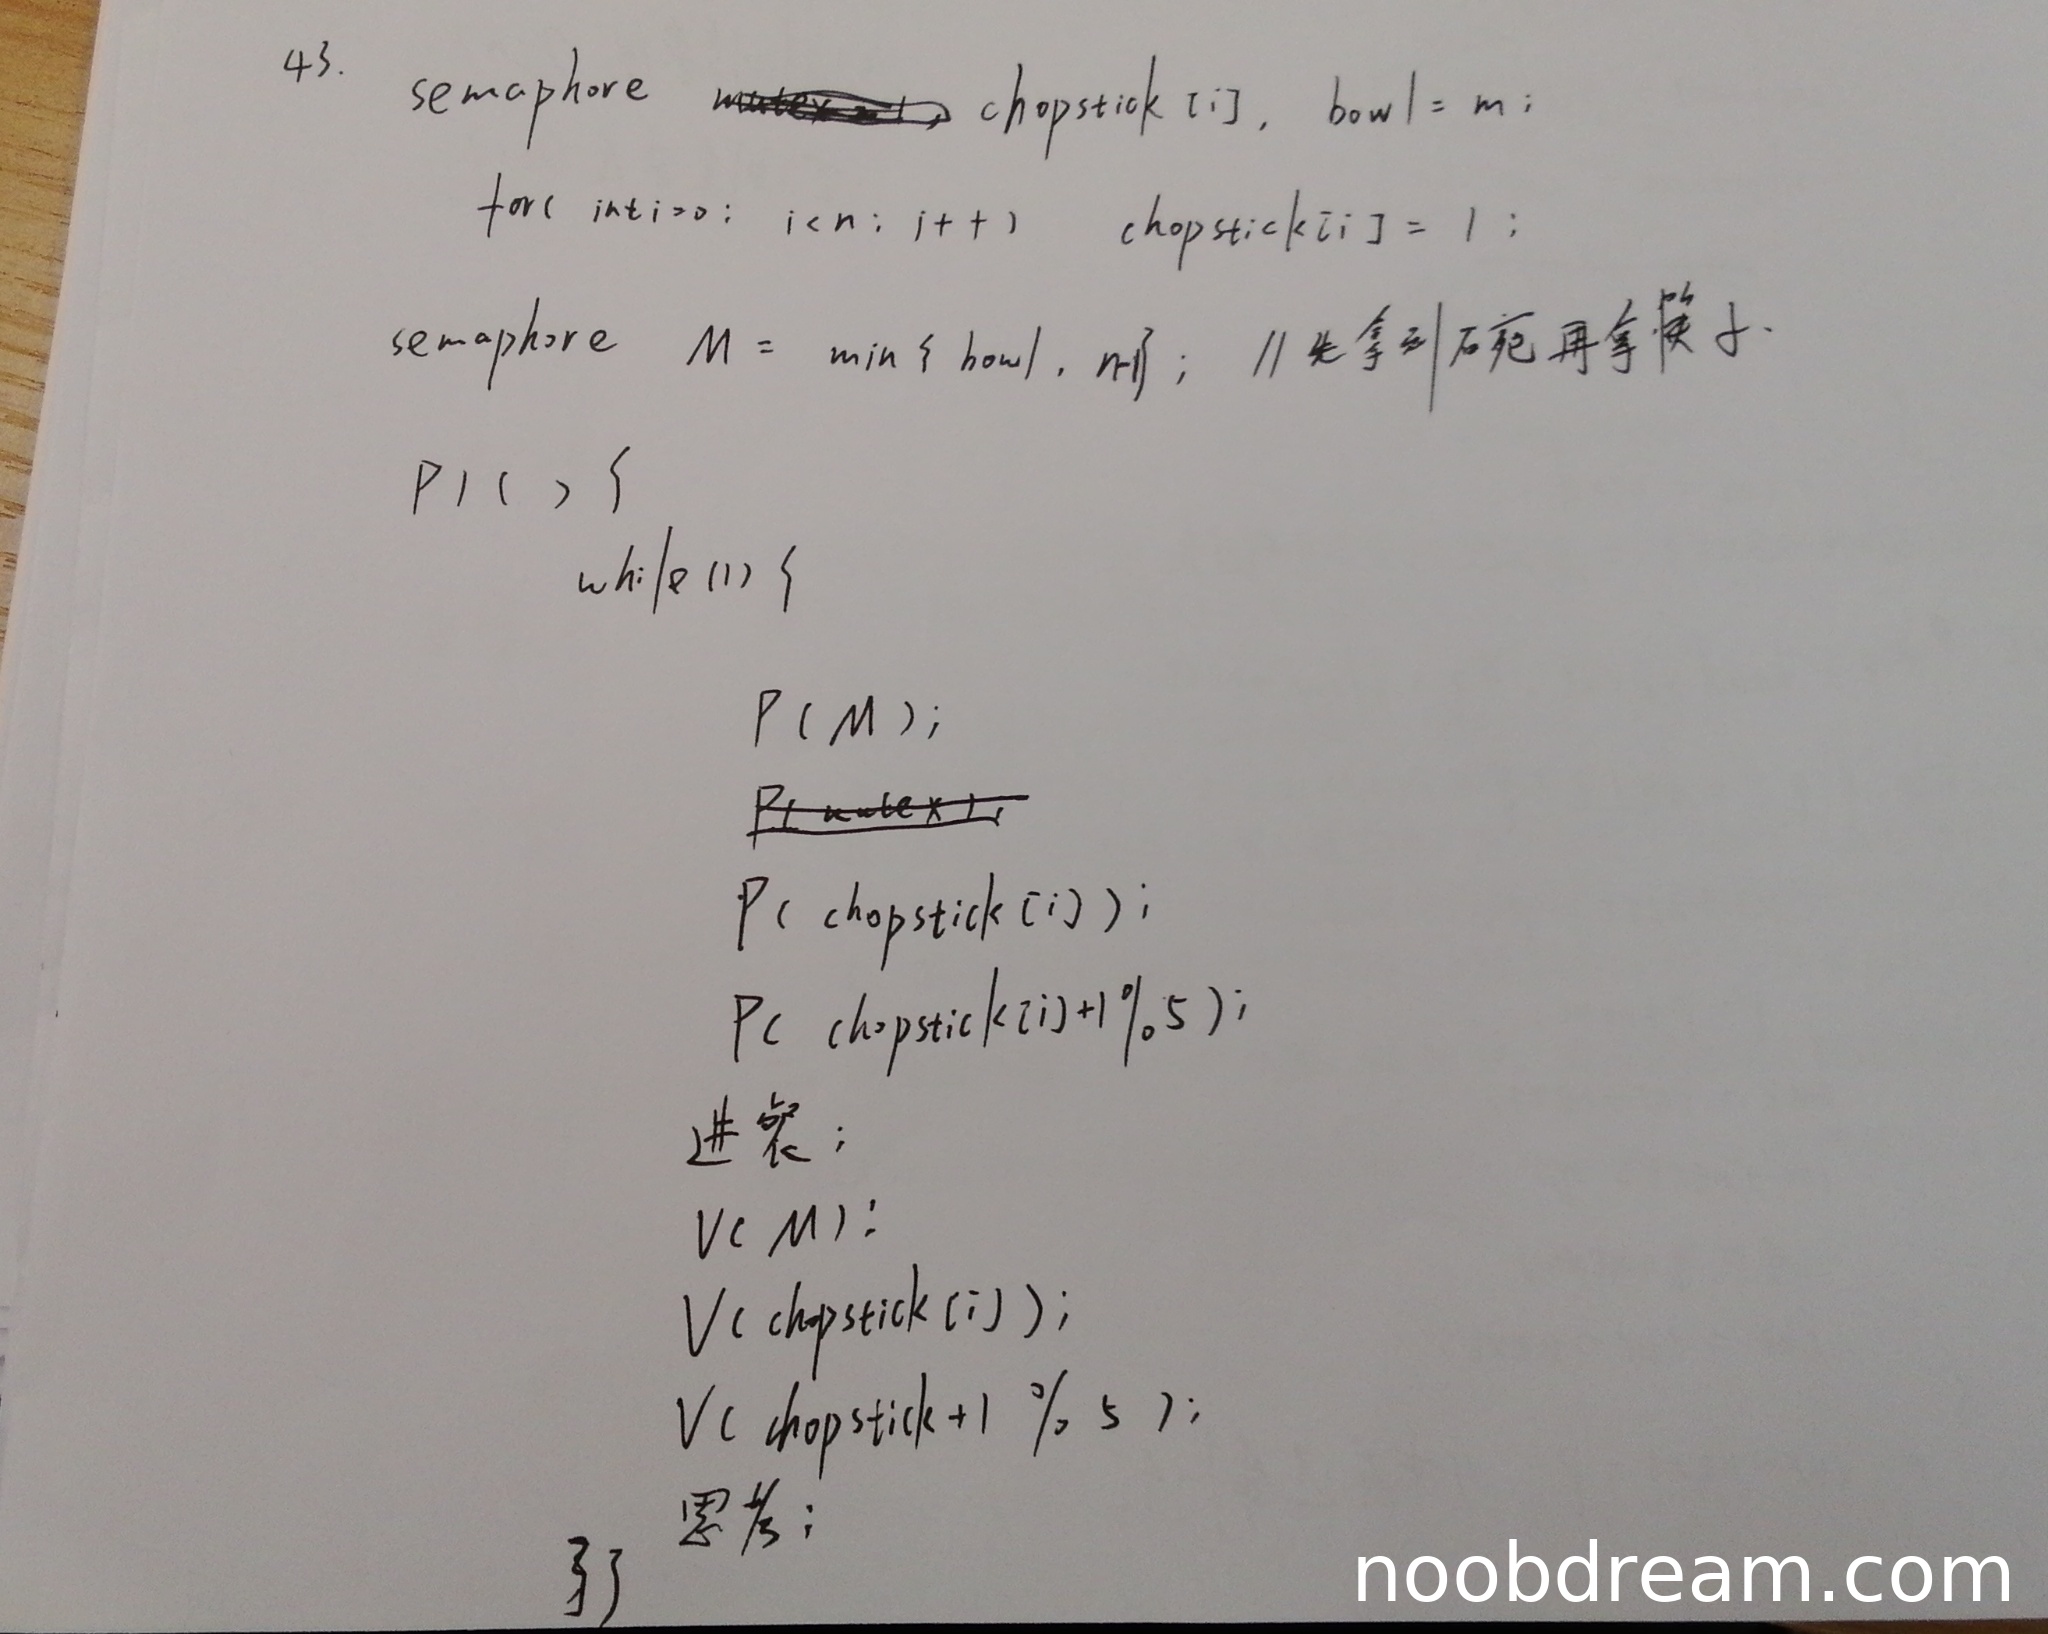 43. semaphore chopstick[i], bowl = m;
for( int i=0; i<n; i++) chopstick[i] = 1;
semaphore M = min{ bowl, n-1}; //先拿到碗再拿筷子.
P1( ) {
while(1) {
P(M);
P(mutex);
P( chopstick[i] );
P( chopstick[i]+1%5 );
进餐;
V(M);
V( chopstick[i] );
V( chopstick+1 % 5 );
思考;
}}
noobdream.com